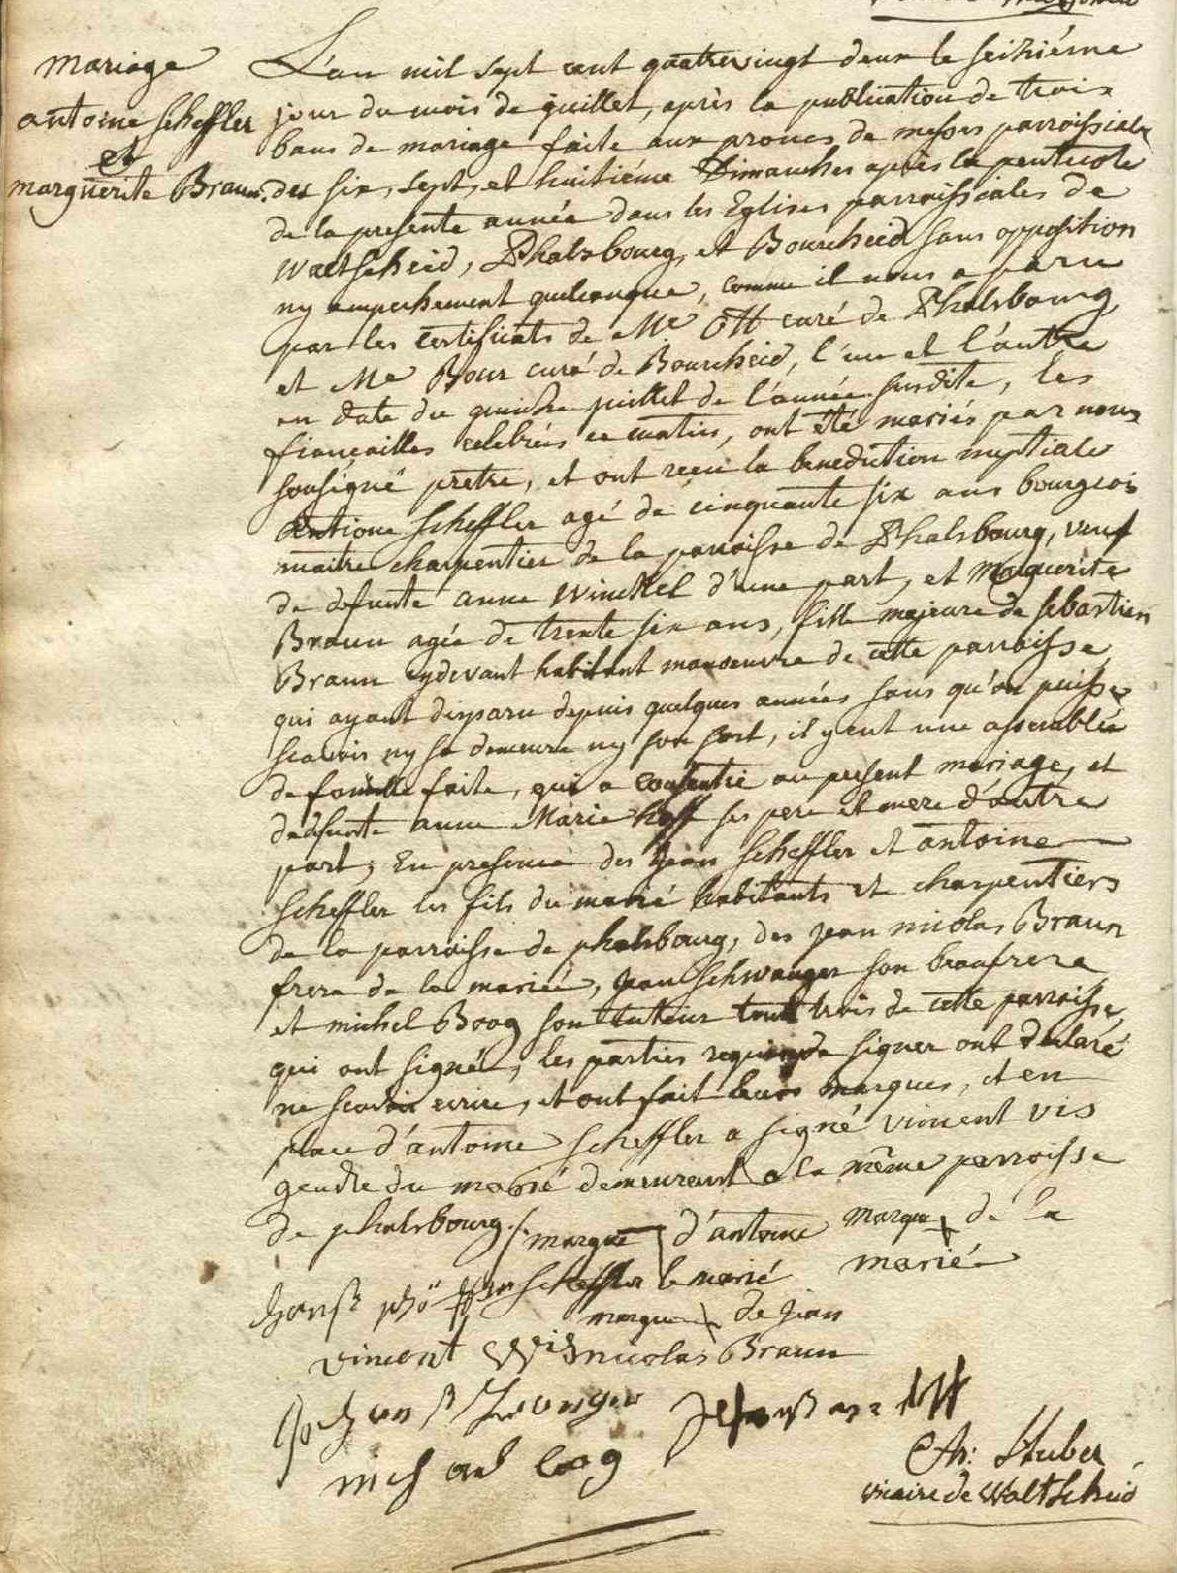 mariage
antoine scheffler
et
marguerite Braun.
L'an mil sept cent quatrevingt deux le seiziéme
jour du mois de juillet, après la publication de trois
bans de mariage faite aux prones de messes parroissiales
des six, sept, et huitiéme Dimanches après la pentecote
de la presente année dans les Eglises parroissiales de
Waltscheid, Phalsbourg, et Bourscheid sans opposition
ny empechement quelconque, comme il nous a paru
par les certificats de Me Ott curé de Phalsbourg
et Me Bour curé de Bourscheid, l'un et l'autre
en date du quinze juillet de l'année susdite, les
fiançailles celebrées ce matin, ont été mariés par nous
sousigné prêtre, et ont reçu la benediction nuptiale
Antione Scheffler agé de cinquante six ans bourgeois
maitre charpentier de la parroisse de Phalsbourg, veuf
de defunte anne Winckel d'une part, et Marguerite
Braun agée de trente six ans, fille majeure de sebastien
Braun cydevant habitant manoeuvre de cette parroisse
qui ayant disparu depuis quelques années sans qu'on puisse
scavoir ny sa demeure ny son sort, il y eut une assemblée
de famille faite, qui a consentie au present mariage, et
de defunte anne Marie hoff ses pere et mere d'autre
part, En presence des Jean Scheffler et antoine
Scheffler les fils du marié habitants et charpentiers
de la parroisse de phalsbourg, des jean nicolas Braun
frere de la mariée, Jean Schwanger son beaufrere
et michel Boog son tuteur tout trois de cette parroisse,
qui ont signé, les parties requises de signer ont declaré
ne scavoir ecrire, et ont fait leurs marques, et en
place d'antoine Scheffler a signé vincent vis
gendre du marié demeurant a la même parroisse
de phalsbourg./.
marque d'antoine
Scheffler le marié
marque de la
mariée
marque de jean
nicolas Braun
vincent Wis
Ch: Huber
vicaire de Waltscheid